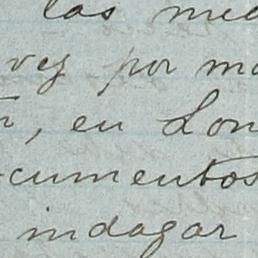 las med
vez por me
n, en Lon
cumentos
indagar